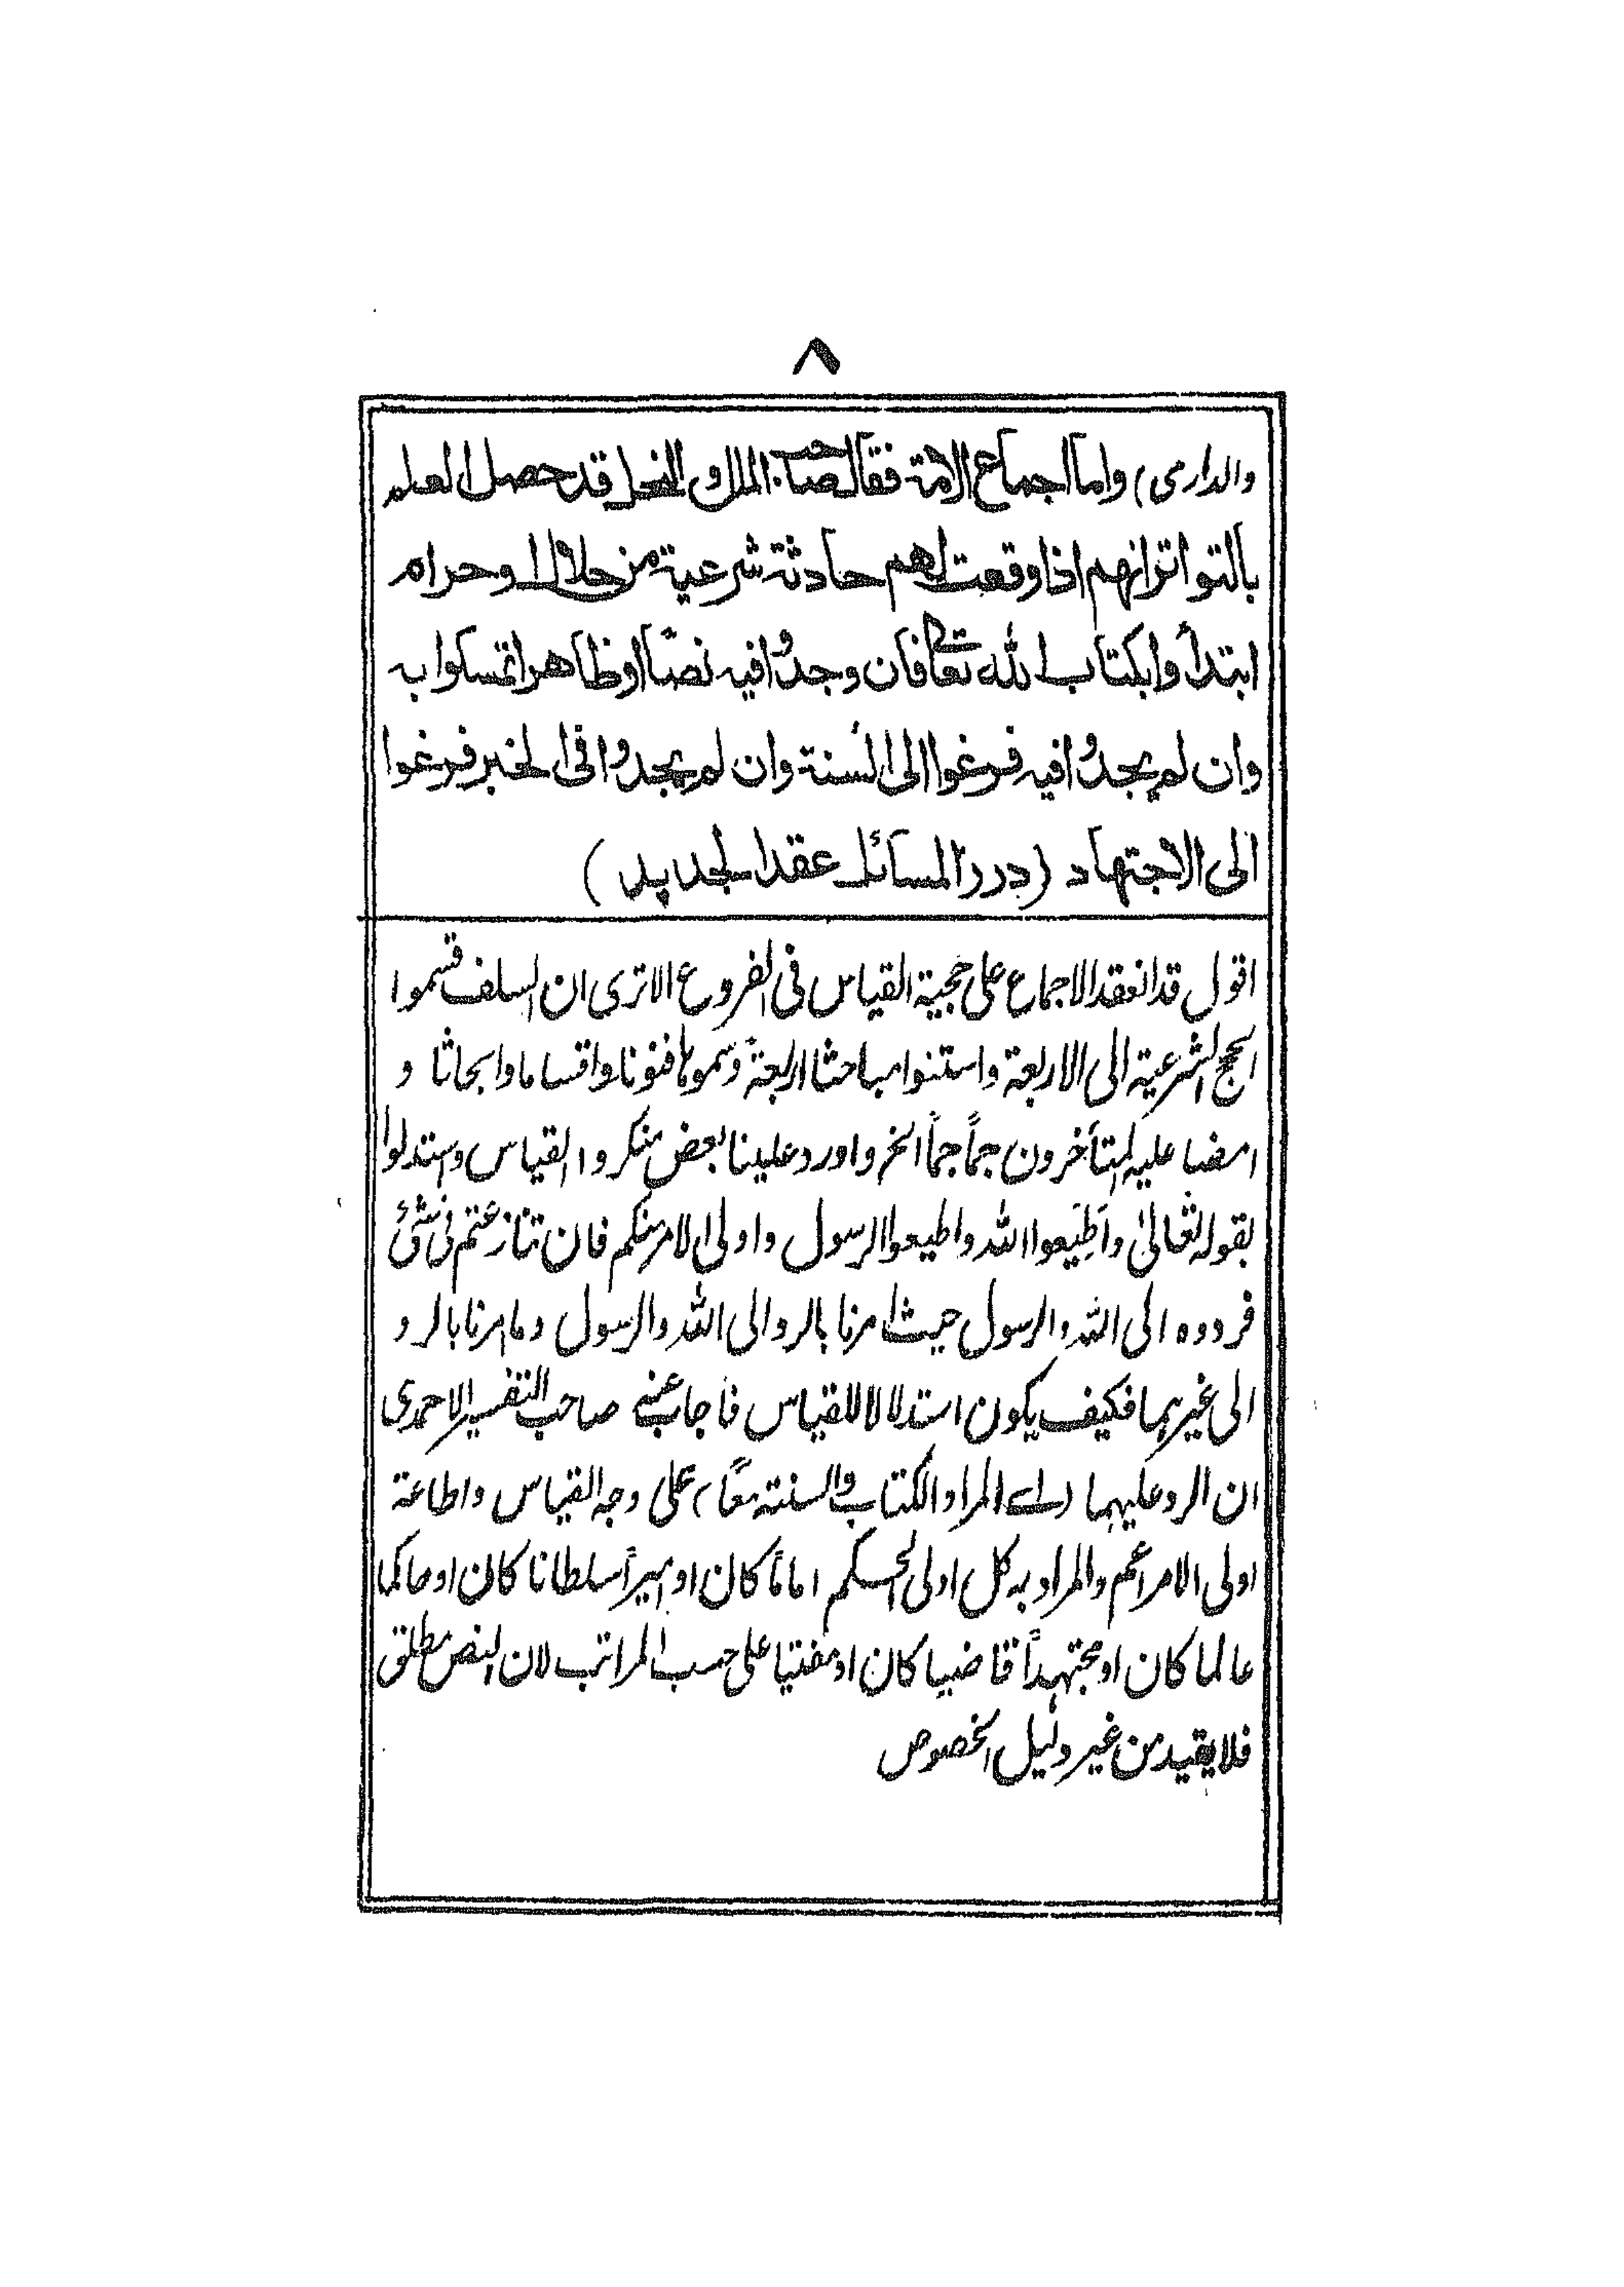 ٨
والدارمی) واما اجماع الامة فقال صاحب الملل و النحل قد حصل العلم
بالتواتر انهم اذا وقعت لهم حادثة شرعية من حلال او حرام
ابتدأوا بكتاب الله تعالى فان وجدوا فيه نصًا او ظاهرا تمسكوا به
وان لم يجدوا فيه فرغوا الى السنة وان لم يجدوا فى الخبر فرغوا
الى الاجتهاد (درر المسائل عقد الجديد)
اقول قد انعقد الاجماع على حجية القياس فى الفروع الا ترى ان السلف قسموا
الحجج الشرعية الى الاربعة واستنوا مباحثا اربعة وسموها فنونا واقساما وابحاثا و
امضا عليه المتأخرون جماً جماً الخ واورد علينا بعض منكروا القياس واستدلوا
بقوله تعالىٰ واَطِيَعوا الله واطيعوا الرسول واولى الامر منكم فان تنازعتم فى شئ
فردوه الى الله والرسول حيث امرنا بالرد الى الله والرسول وما امرنا بالرد
الى غيرهما فكيف يكون استدلالا للقياس فاجاب عنه صاحب التفسير الاحمدى
ان الرد عليهما (اے المراد الكتاب والسنته معًا) على وجه القياس واطاعة
اولى الامر اعم والمراد به كل اولى الحكم اماماً كان او اميراً سلطانا كان او حاكما
عالما كان او مجتهداً قاضيا كان او مفتيا على حسب المراتب لان النص مطلق
فلا يقيد من غير دليل الخصوص